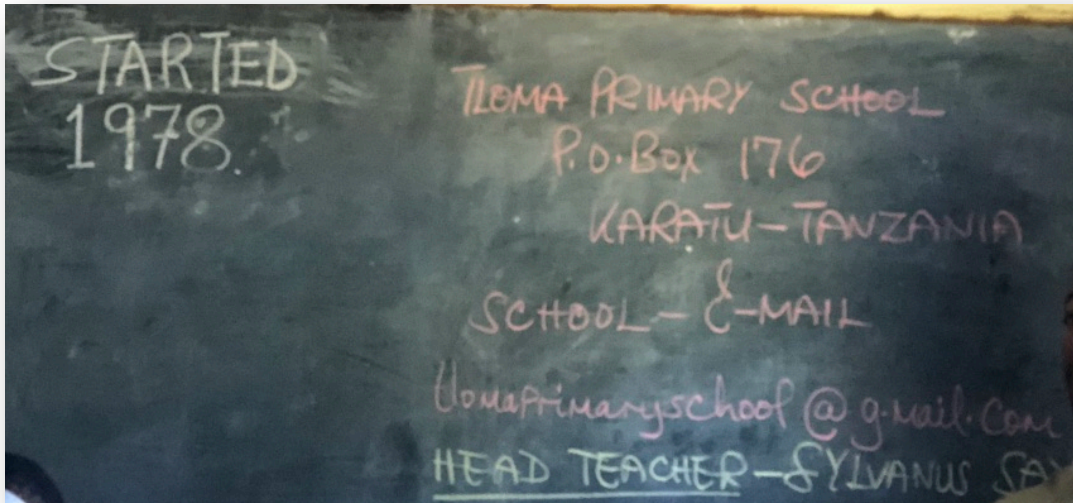 STARTED
1978.
ILOMA PRIMARY SCHOOL
P.O.Box 176
KARATU-TANZANIA
SCHOOL-E-MAIL
ilomaprimaryschool@g.mail.com
HEAD TEACHER-SYLVANUS